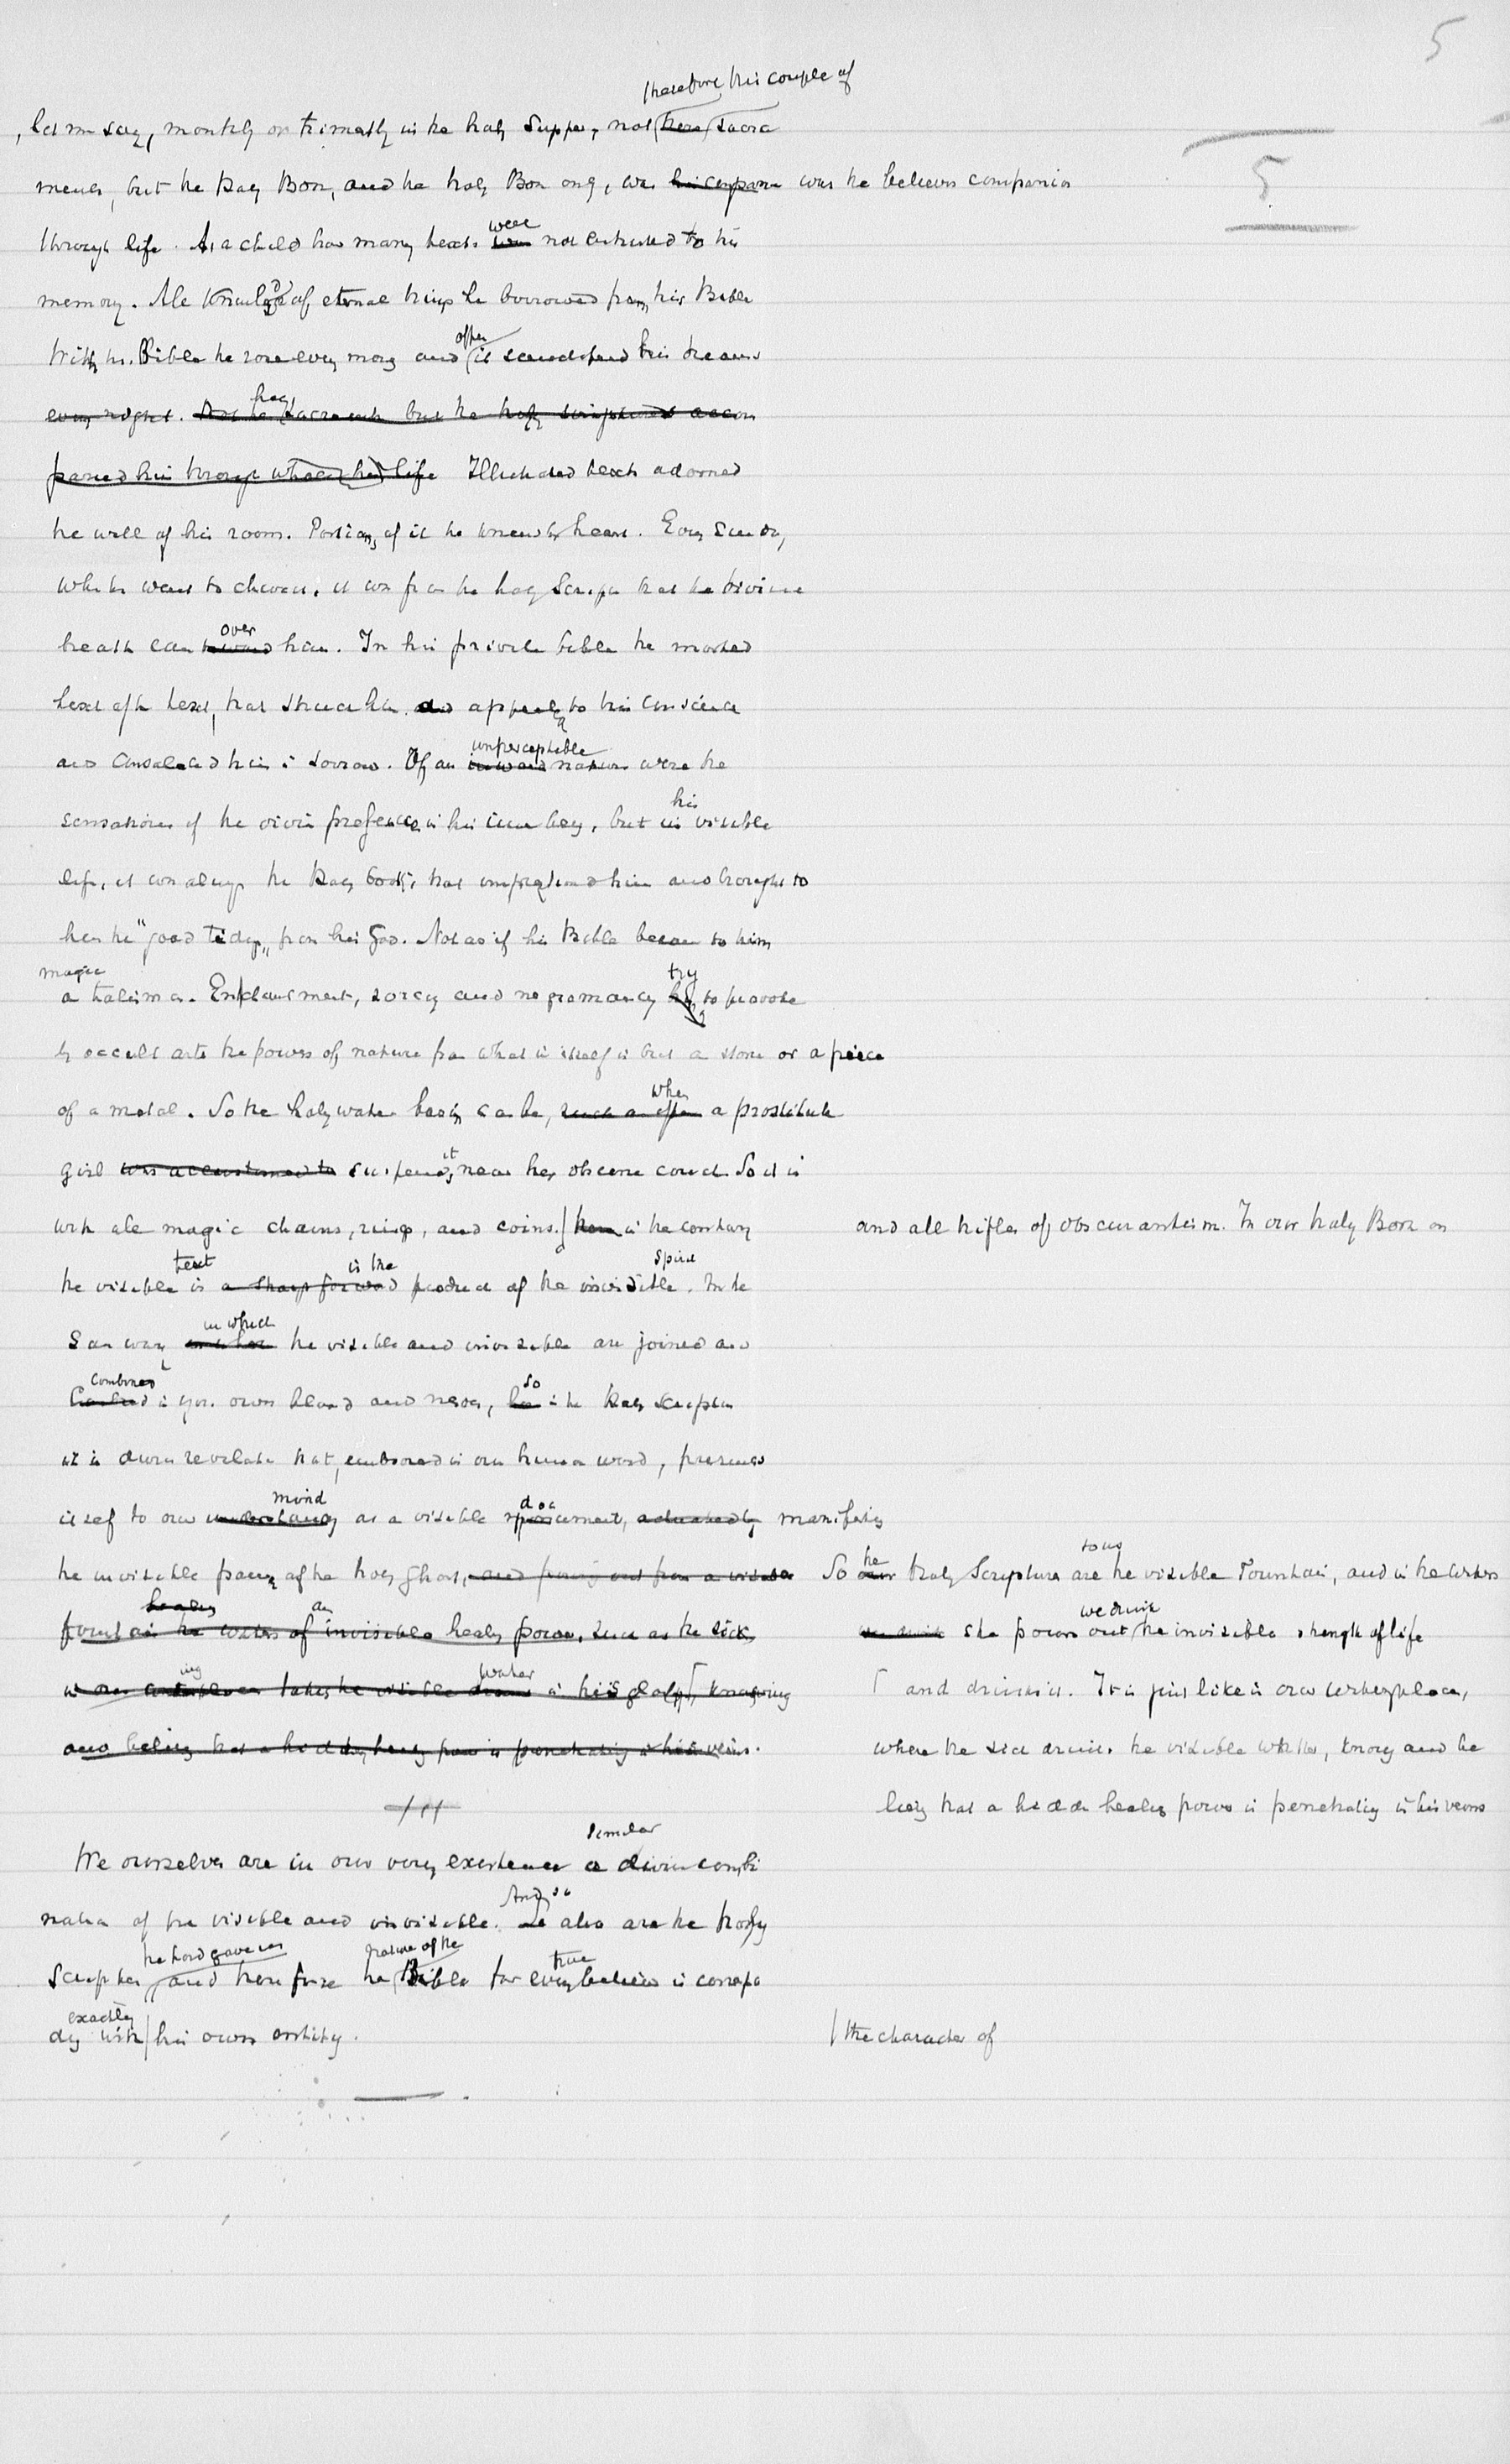 5
therefore, this couple of
, let me say, montly or trimestly in the holy Supper, not these sacra
ments, but the Holy Book, and the holy Book only, was his compan was the believers companion
5
through life. As a child how many texts were not entrusted to his
memory. All knowledge of eternal things he borrowed from his Bible
With his Bible he rose every morng and often it sanctified his dreams
every night. Not the holy Sacraments but the holy scriptures accom
panied him through whole his life Illustrated texts adorned
the wall of his room. Portions of it he knew by heart. Every Sunday,
when he went to church, it was from the holy Script that the divine
breath came toward over him. In his private bible he marked
text after text, that struck him and appealed to his conscience
and consoled him in sorrow. Of an inward unperceptible nature were the
sensations of the divine presence in his inner being, but in his visible
life, it was always the Holy book, that inspired him and brought to
him the "good tidings" from his God. Not as if his Bible became to him
a magic talisman. Enchantment, sorcery and negromancy try to provoke
by occult arts the powers of nature from what in itself is but a stone or a piece
of a metal. So the holy water basin can be, such as often when a prostitute
girl was accustomed to suspends it near her obscene couch. So it is
with all magic chains, rings, and coins. and all trifles of obscurantism. In our holy Book on
here in the contrary
the visible text is a sharp forward is the product of the invisible Spirit. In the
same way in which the visible and invisible are joined and
combined in your own blood and nerves, so in the Holy Scripture
it is divine revelation that, embodied in our human word, presents
itself to our understanding mind as a visible document, manifesting
the invisible power of the holy Ghost, and pouring out from a visible
So the our Holy Scripture are to us the visible Fountain, and in the waters
fountain the waters of an invisible healing power, such as the sick
we drink she pours out we drink the invisible strength of life
takes the visible water in his glass, knowing
and drinks it. It is just like in our watering place,
and believing that a hidden healing power is penetrating in his veins.
where the sick drinks the visible water, knowing and be
lieving that a hidden healing power is penetrating in his veins
We ourselves are in our very existence a similar divine combi
nation of the visible and invisible. And so also are the holy
Scriptures the Lord gave us, and therefore the nature of the Bible for every true believer is correspon
ding exactly with his own entity.
the character of